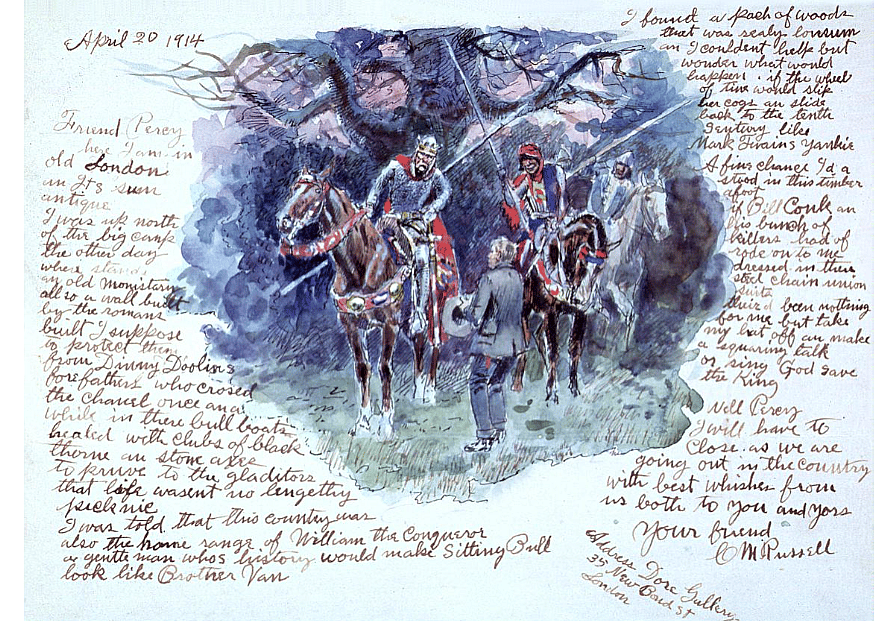 April 20 1914
Friend Percy
here I am in
old London
an Its sum
antique
I was up north
of the big camp
the other day
where stands
an old Monistary
allso a wall built
by the romans
built I suppose
to protect them
from Dinny Doolins
forefathers who crosed
the chanel once an a
while in there bull boats
heeled with clubs of black
thorne an stone axes
to pruve to the gladitors
that life wasent no lengethy
picknic
I was told that this country was
also the home range of William the Conqueror
a gentle man whos history would make Sitting Bull
look like Brother Van
I found a pach of woods
that was realy lonsum
an I couldent help but
wonder what would
happen if the wheel
of time would slip
her cogs an slide
back to the tenth
Sentury like
Mark Twains Yankie
A fine chance I'd a
stood in this timber
afoot
if Bill Conk an
his bunch of
killers had of
rode on to me
dressed in their
steel chain union
suits
their'd been nothing
for me but take
my hat off an make
a squaring talk
or sing God save
the King
Well Percy
I will have to
close as we are
going out in the country
with best whishes from
us both to you and yors
Your friend
C M Russell
Address Dore Gullery
35 New Bond St
London